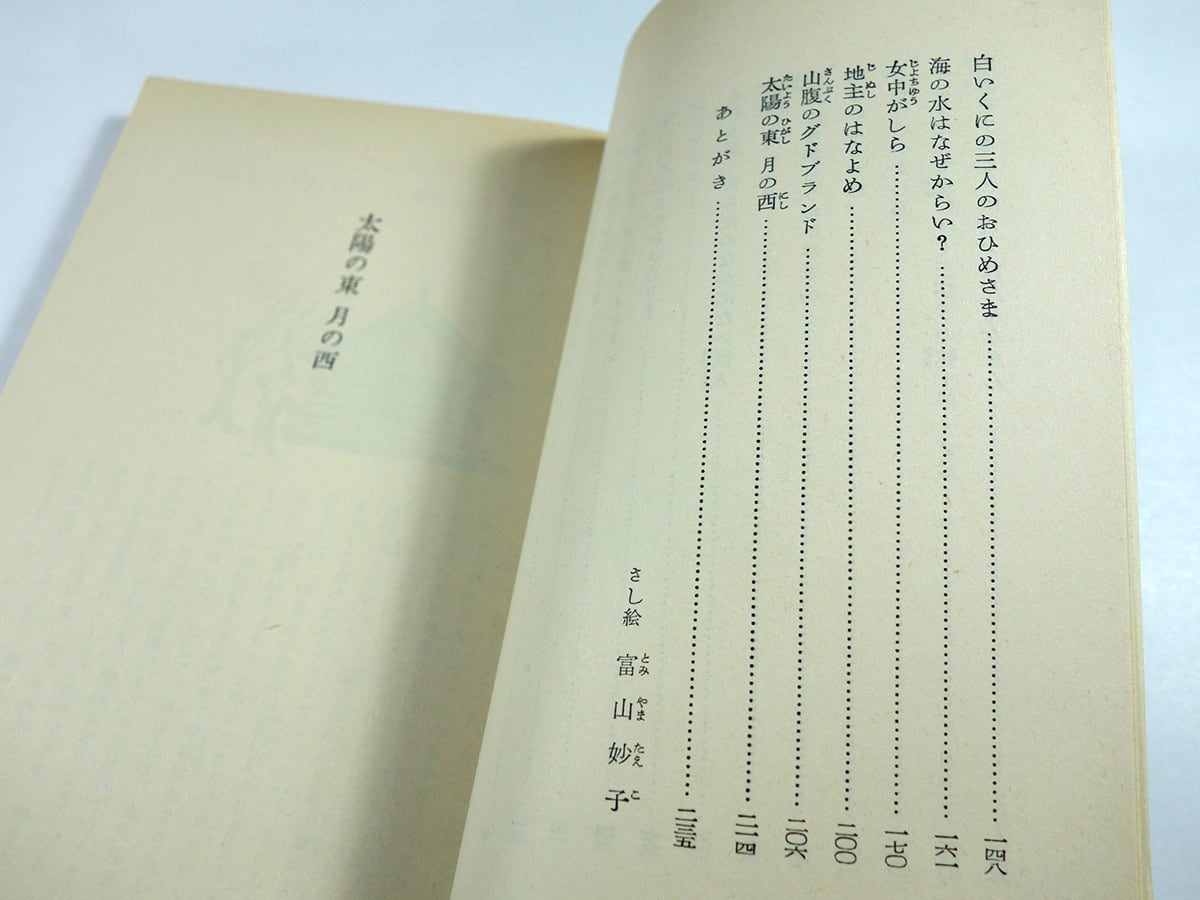 白いくにの三人のおひめさま……一四八
海の水はなぜからい?……一六一
女中がしら……一七〇
地主のはなよめ……二〇〇
山腹のグドブランド……二〇六
太陽の東 月の西……二一四
あとがき……二三五
さし絵 富山妙子
太陽の東 月の西